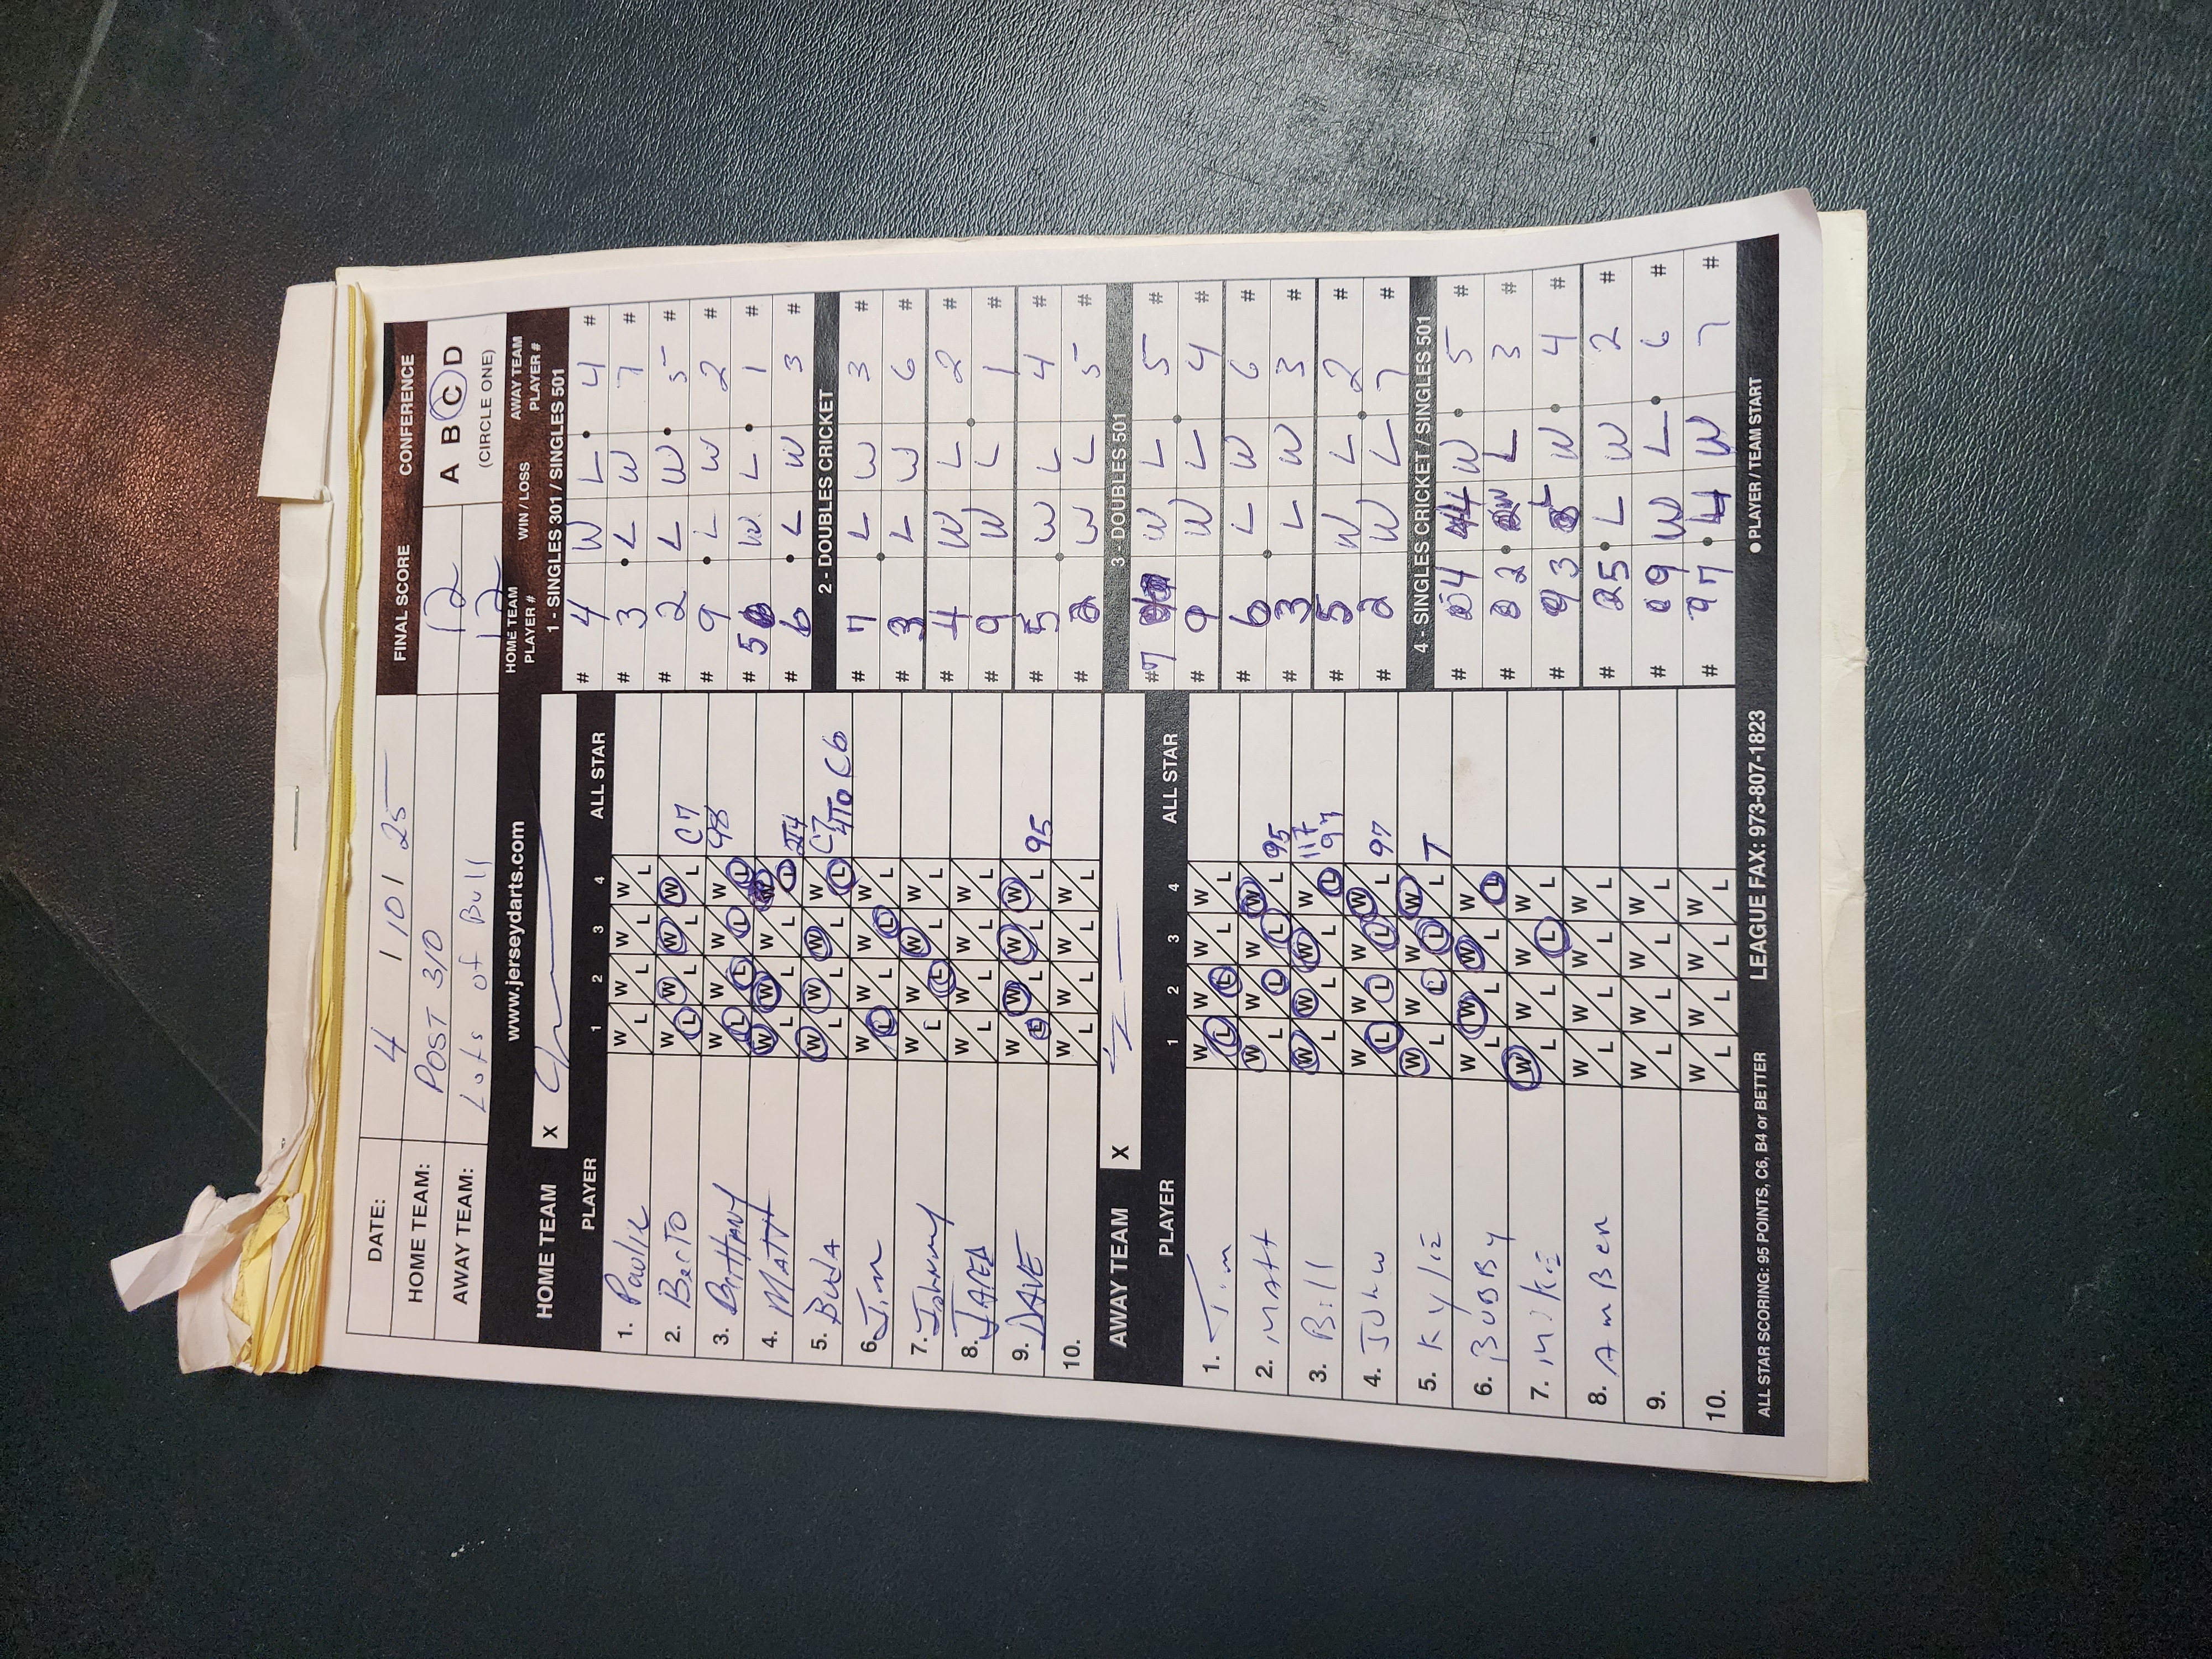 DATE: 4 / 10 / 25 FINAL SCORE CONFERENCE
HOME TEAM: POST 310 12 A B C D
AWAY TEAM: Lots of Bull 12 (CIRCLE ONE)
www.jerseydarts.com
HOME TEAM X
PLAYER 1 2 3 4 ALL STAR
1. Paulie W L W L W L W L
2. BerTO W L W L W L W L C7
3. BriTTANY W L W L W L W L 98
4. MATT W L W L W L W L
5. W L W L W L W L C7 4TO C6
6. Jim W L W L W L W L
7. Johnny W L W L W L W L
8. JARED W L W L W L W L
9. DAVE W L W L W L W L 95
10. W L W L W L W L
AWAY TEAM X
PLAYER 1 2 3 4 ALL STAR
1. Jim W L W L W L W L
2. MATT W L W L W L W L 95
3. Bill W L W L W L W L 117 97
4. JOHN W L W L W L W L 97
5. KYLIE W L W L W L W L T
6. BUBBY W L W L W L W L
7. MIKE W L W L W L W L
8. AmBer W L W L W L W L
9. W L W L W L W L
10. W L W L W L W L
ALL STAR SCORING: 95 POINTS, C6, B4 or BETTER LEAGUE FAX: 973-807-1823
HOME TEAM PLAYER # WIN / LOSS AWAY TEAM PLAYER #
1 - SINGLES 301 / SINGLES 501
# 4 W L 4 #
# 3 L W 7 #
# 2 L W 5 #
# 9 L W 2 #
# 5 W L 1 #
# 6 L W 3 #
2 - DOUBLES CRICKET
# 7 L W 3 #
# 3 L W 6 #
# 4 W L 2 #
# 9 W L 1 #
# 5 W L 4 #
# 2 W L 5 #
3 - DOUBLES 501
# 7 W L 5 #
# 9 W L 4 #
# 6 L W 6 #
# 3 L W 3 #
# 5 W L 2 #
# 2 W L 7 #
4 - SINGLES CRICKET / SINGLES 501
# 4 L W 5 #
# 2 W L 3 #
# 3 L W 4 #
# 5 L W 2 #
# 9 W L 6 #
# 7 L W 7 #
PLAYER / TEAM START